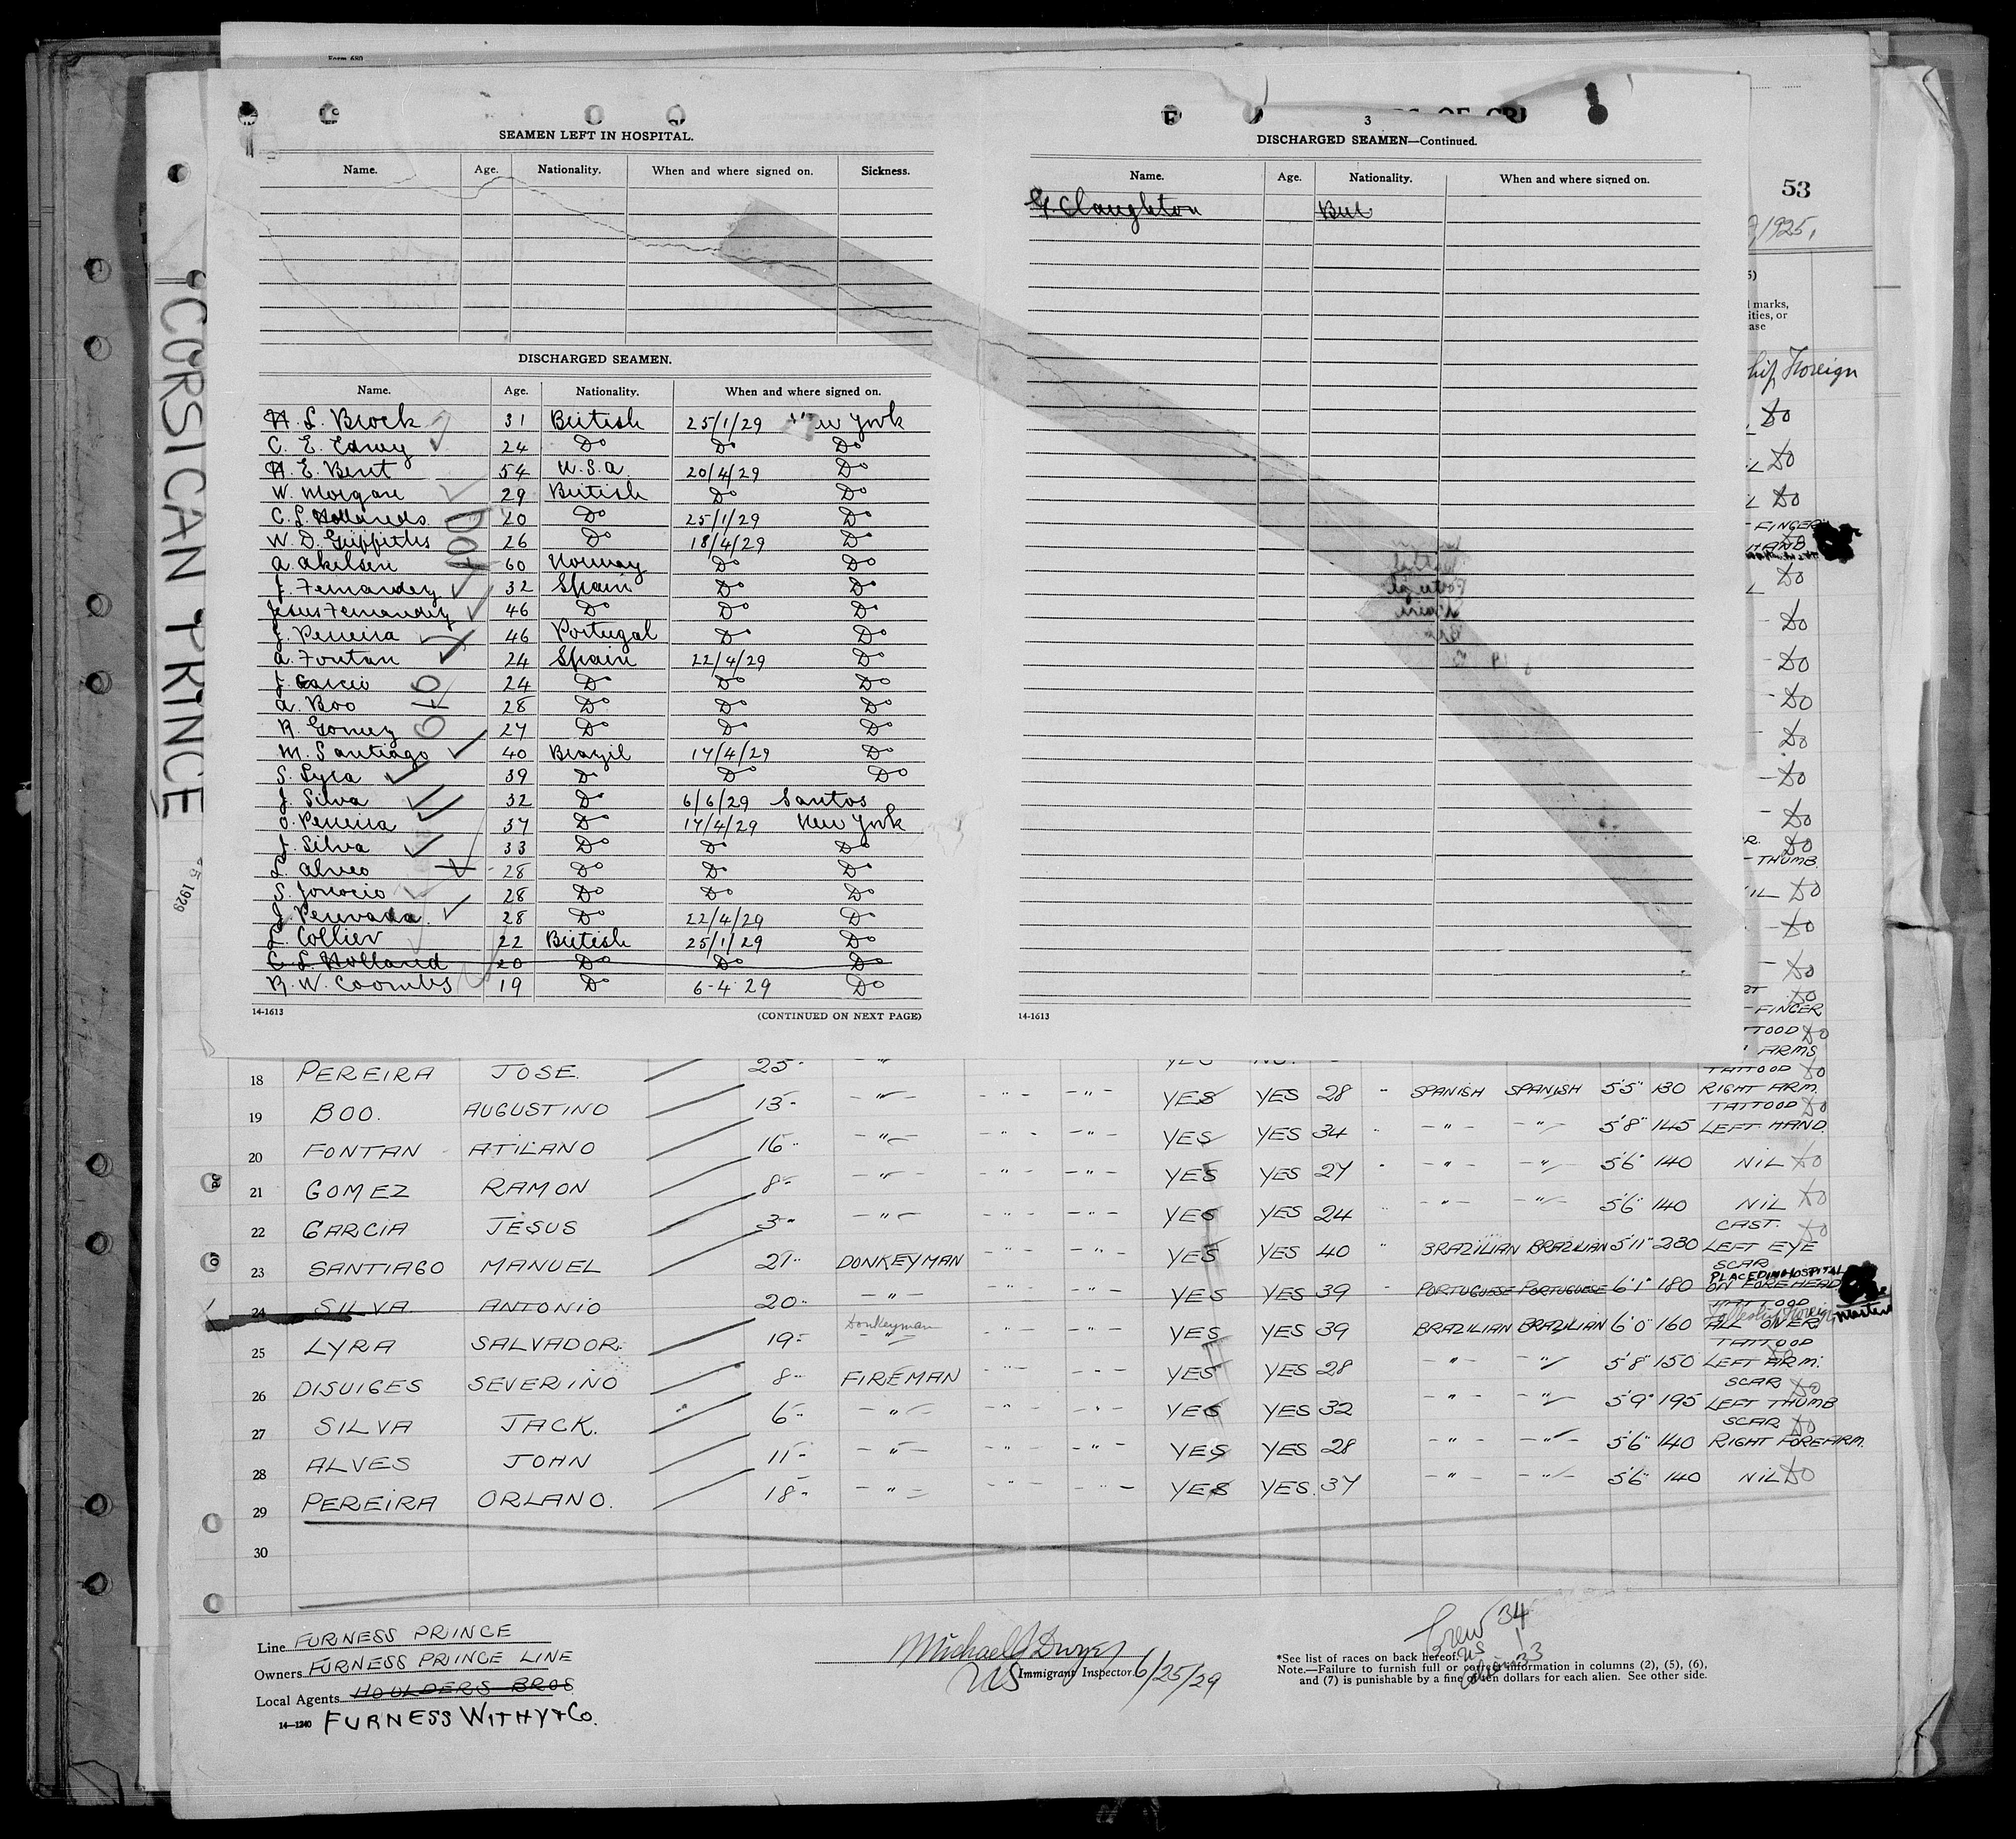 Form 680
SEAMEN LEFT IN HOSPITAL.
Name. Age. Nationality. When and where signed on. Sickness.
DISCHARGED SEAMEN.
Name. Age. Nationality. When and where signed on.
H. L. Brock 31 British 25/1/29 New York
C. E. 24 Do Do Do
H. E. Bent 54 U.S.A. 20/4/29 Do
W. Morgan 29 British Do Do
C. L. Hollands 20 Do 25/1/29 Do
W. D. Griffiths 26 Do 18/4/29 Do
A. Akelsen 60 Norway Do Do
J. Fernandez 32 Spain Do Do
Jesus Fernandez 46 Do Do Do
J. Perreira 46 Portugal Do Do
A. Fontan 24 Spain 22/4/29 Do
J. Garcio 24 Do Do Do
A. Boo 28 Do Do Do
R. Gomez 27 Do Do Do
M. Santiago 40 Brazil 17/4/29 Do
S. Lyra 39 Do Do Do
J. Silva 32 Do 6/6/29 Santos
O. Perreira 37 Do 17/4/29 New York
J. Silva 33 Do Do Do
L. Alves 28 Do Do Do
S. 28 Do Do Do
J. 28 Do 22/4/29 Do
L. Collier 22 British 25/1/29 Do
C. L. Holland 20 Do Do Do
R. W. Coombs 19 Do 6-4-29 Do
14-1613 (CONTINUED ON NEXT PAGE)
3
DISCHARGED SEAMEN—Continued.
Name. Age. Nationality. When and where signed on.
G. Claughton
14-1613
"CORSICAN PRINCE
5 1929
53
1925,
marks,
ities, or
ase
hip Foreign
Do
Do
Do
FINGER
HAND
Do
Do
Do
Do
Do
Do
Do
Do
THUMB.
NIL Do
Do
Do
Do
FINGER
TATTOOD Do
ARMS
18 PEREIRA JOSE. 25 - " -
19 BOO. AUGUSTINO 13 - " - - " - - " - YES YES 28 " SPANISH SPANISH 5'5" 130 TATTOOD RIGHT ARM. Do
20 FONTAN ATILANO 16 - " - - " - - " - YES YES 34 " - " - - " - 5'8" 145 TATTOOD LEFT HAND. Do
21 GOMEZ RAMON 8 - " - - " - - " - YES YES 27 " - " - - " - 5'6" 140 NIL Do
22 GARCIA JESUS 3 - " - - " - - " - YES YES 24 " - " - - " - 5'6" 140 NIL Do
23 SANTIAGO MANUEL 21 DONKEYMAN - " - - " - YES YES 40 " BRAZILIAN BRAZILIAN 5'11" 230 CAST. LEFT EYE Do
24 SILVA ANTONIO 20 - " - - " - - " - YES YES 39 PORTUGUESE PORTUGUESE 6'1" 180 SCAR ON FOREHEAD PLACED IN HOSPITAL
25 LYRA SALVADOR 19 Donkeyman - " - - " - YES YES 39 BRAZILIAN BRAZILIAN 6'0" 160 TATTOOD ALL OVER
26 DISUIGES SEVERINO 8 FIREMAN - " - - " - YES YES 28 - " - - " - 5'8" 150 TATTOOD LEFT ARM. Do
27 SILVA JACK. 6 - " - - " - - " - YES YES 32 - " - - " - 5'9" 195 SCAR LEFT THUMB Do
28 ALVES JOHN 11 - " - - " - - " - YES YES 28 - " - - " - 5'6" 140 SCAR RIGHT FOREARM. Do
29 PEREIRA ORLANO. 18 - " - - " - - " - YES YES. 37 - " - - " - 5'6" 140 NIL Do
30
Line FURNESS PRINCE
Owners FURNESS PRINCE LINE
Local Agents HOULDERS BROS
14—1240 FURNESS WITHY & Co.
Michael J Dwyer
US Immigrant Inspector. 6/25/29
Crew 34
US 1
alien 33
*See list of races on back hereof.
Note.—Failure to furnish full or correct information in columns (2), (5), (6),
and (7) is punishable by a fine of ten dollars for each alien. See other side.